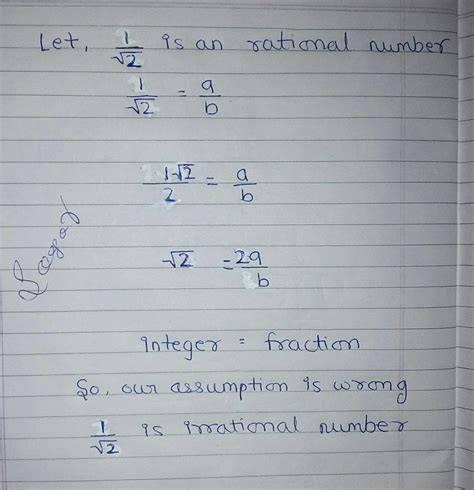 Let, 1/√2 is an rational number
1/√2 = a/b
1√2/2 = a/b
√2 = 2a/b
integer = fraction
So, our assumption is wrong
1/√2 is irrational number